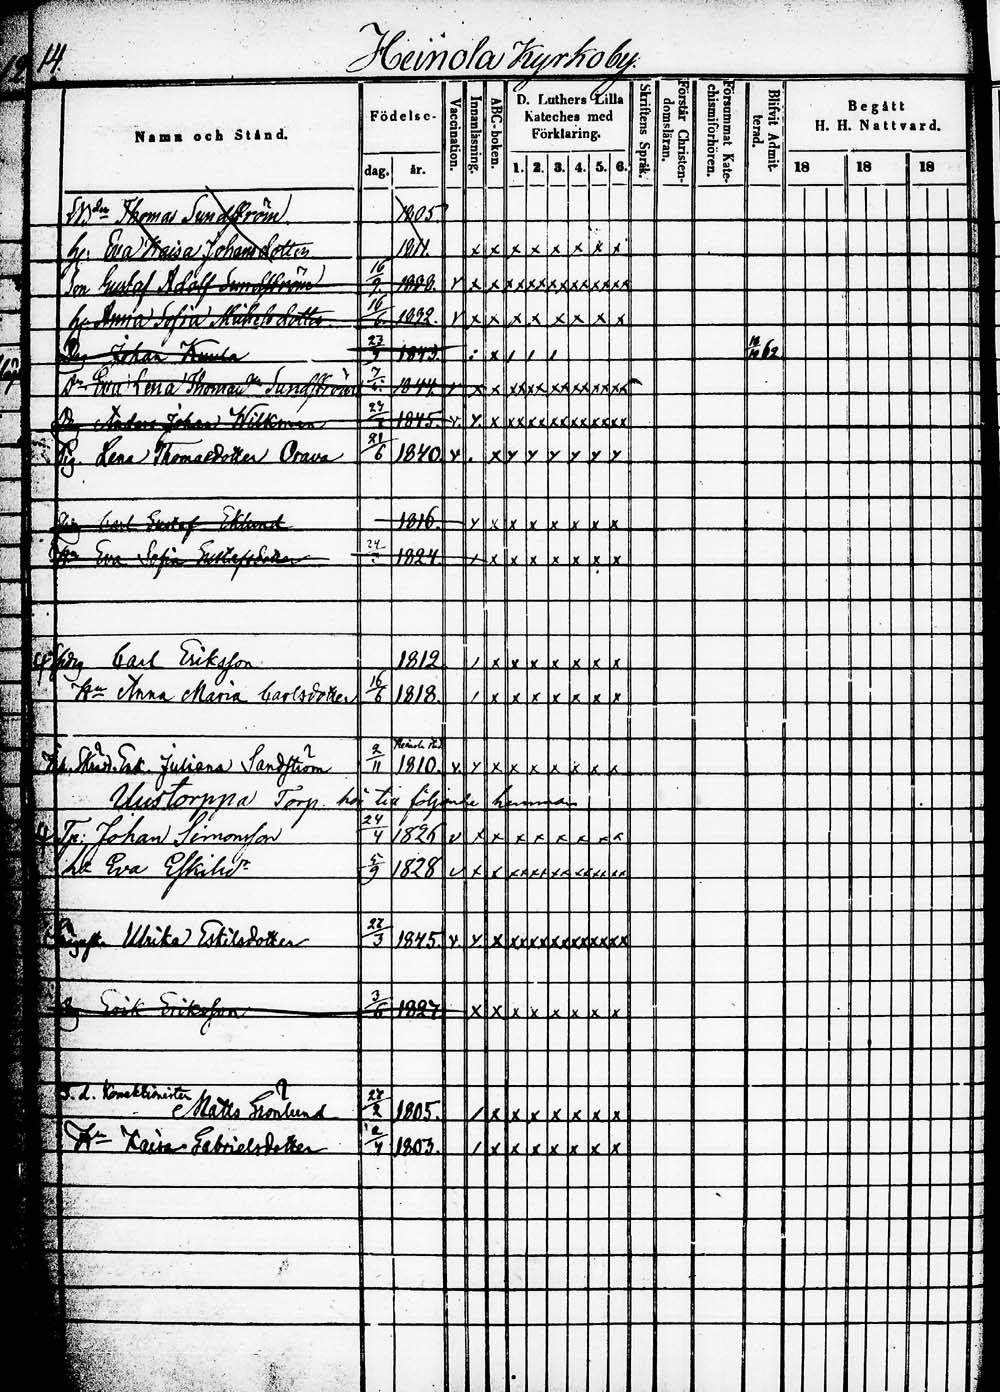 14.
Heinola Kyrkoby.
Namn och Stånd.
Födelse-
dag. år.
Vaccination.
Innanläsning.
ABC-boken.
D. Luthers Lilla
Kateches med
Förklaring.
1. 2. 3. 4. 5. 6.
Skriftens Språk.
Förstår Christen-
domsläran.
Försummat Kate-
chismiförhören.
Blifvit Admit-
terad.
Begått
H. H. Nattvard.
18 18 18
Thomas Sundström 1805
h. Eva Kaisa Johansdotter 1811. x x x x x x x x
Son Gustaf Adolf Sundström 16/9 v x x xx xx xx xx xx xx
h. Anna Sofia Mickelsdotter 16/6 1832. v x x x x x x x x
Johan Kuula 23/9 1843. x / / / 62
Eva Lena Thomasdr Sundström 7/5 1844. v x x xx xx xx xx xx xx
Anders Johan Wilkman 1845. v. x. x xx xx xx xx xx xx
Pig. Lena Thomasdotter Orava 21/6 1840. v . x y y y y y y
Carl Gustaf Eklund 1816. y x x x x x x x
Hu Eva Sofia Gustafsdotter 1824. / x x x x x x x
Carl Eriksson 1812 / x x x x x x x
Hu Anna Maria Carlsdotter 16/6 1818. / x x x x x x x
Enk. Juliana Sandström 2/11 1810. v. y x x x x x x x
Uustorppa Torp. hör till följande hemman
Tp. Johan Simonsson 24/4 1826 v x x x x x x x x
h. Eva Eskilsdr 5/9 1828 v x x xx xx xx xx xx xx
Ulrika Eskilsdotter 27/3 1845. v. y x xx xx xx xx xx xx
Erik Eriksson 3/6 1827 x x x x x x x x
F. d. Korrektionisten
Matts Grönlund 27/2 1805. / x x x x x x x
Hu Kaisa Gabrielsdotter 2/4 1803. / x x x x x x x